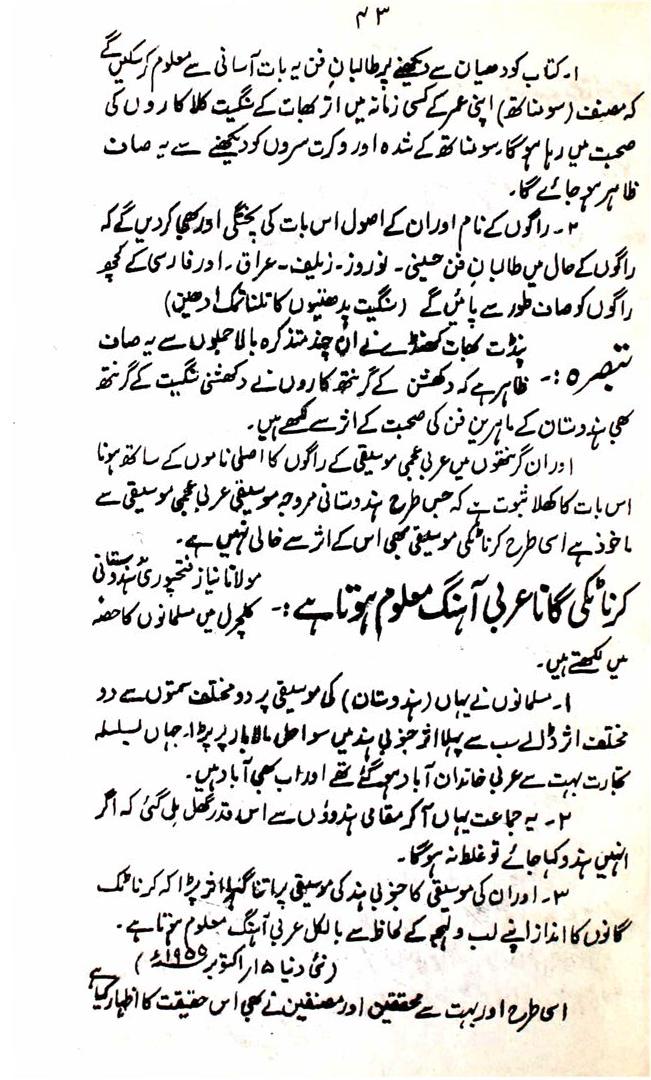 ۴۳
۱۔ کتاب کو دھیان سے دیکھنے پر طالبانِ فن یہ بات آسانی سے معلوم کرسکیں گے
کہ مصنف (سومناتھ) اپنی عمر کے کسی زمانہ میں اتر بھارت کے سنگیت کلاکاروں کی
صحبت میں رہا ہوگا۔ سومناتھ کے شدھ اور وکرت سروں کو دیکھنے سے یہ صاف
ظاہر ہوجائے گا۔
۲۔ راگوں کے نام اور ان کے اصول اس بات کی پختگی اور بھی کردیں گے کہ
راگوں کے حال میں طالبانِ فن حسینی۔ نوروز۔ زیلیف۔ عراق۔ اور فارسی کے کچھ
راگوں کو صاف طور سے پائیں گے (سنگیت پدھتیوں کا تلناتمک ادھین)
تبصرہ :- پنڈت بھات کھنڈے نے ان چند متذکرہ بالا جملوں سے یہ صاف
ظاہر ہے کہ دکھشن کے گرنتھ کاروں نے دکھشنی سنگیت کے گرنتھ
بھی ہندوستان کے ماہرین فن کی صحبت کے اثر سے لکھے ہیں۔
اور ان گرنتھوں میں عربی عجمی موسیقی کے راگوں کا اصلی ناموں کے ساتھ ہونا
اس بات کا کھلا ثبوت ہے کہ جس طرح ہندوستانی مروجہ موسیقی عربی عجمی موسیقی سے
ماخوذ ہے اسی طرح کرناٹکی موسیقی بھی اس کے اثر سے خالی نہیں ہے۔
کرناٹکی گانا عربی آہنگ معلوم ہوتا ہے :- مولانا نیاز فتحپوری ہندوستانی
کلچرل میں مسلمانوں کا حصہ
میں لکھتے ہیں۔
۱۔ مسلمانوں نے یہاں (ہندوستان) کی موسیقی پر دو مختلف سمتوں سے دو
مختلف اثر ڈالے سب سے پہلا اثر جنوبی ہند میں سواحل مالابار پر پڑا۔ جہاں بسلسلہ
تجارت بہت سے عربی خاندان آباد ہوگئے تھے اور اب بھی آباد ہیں۔
۲۔ یہ جماعت یہاں آکر مقامی ہندوؤں سے اس قدر گھل مل گئی کہ اگر
انہیں ہندو کہا جائے تو غلط نہ ہوگا۔
۳۔ اور ان کی موسیقی کا جنوبی ہند کی موسیقی پر اتنا گہرا اثر پڑا کہ کرناٹک
گانوں کا انداز اپنے لب و لہجہ کے لحاظ سے بالکل عربی آہنگ معلوم ہوتا ہے۔
(نئی دنیا ۱۵ اکتوبر ۱۹۵۵ء)
اسی طرح اور بہت سے محققین اور مصنفین نے بھی اس حقیقت کا اظہار کیا ہے